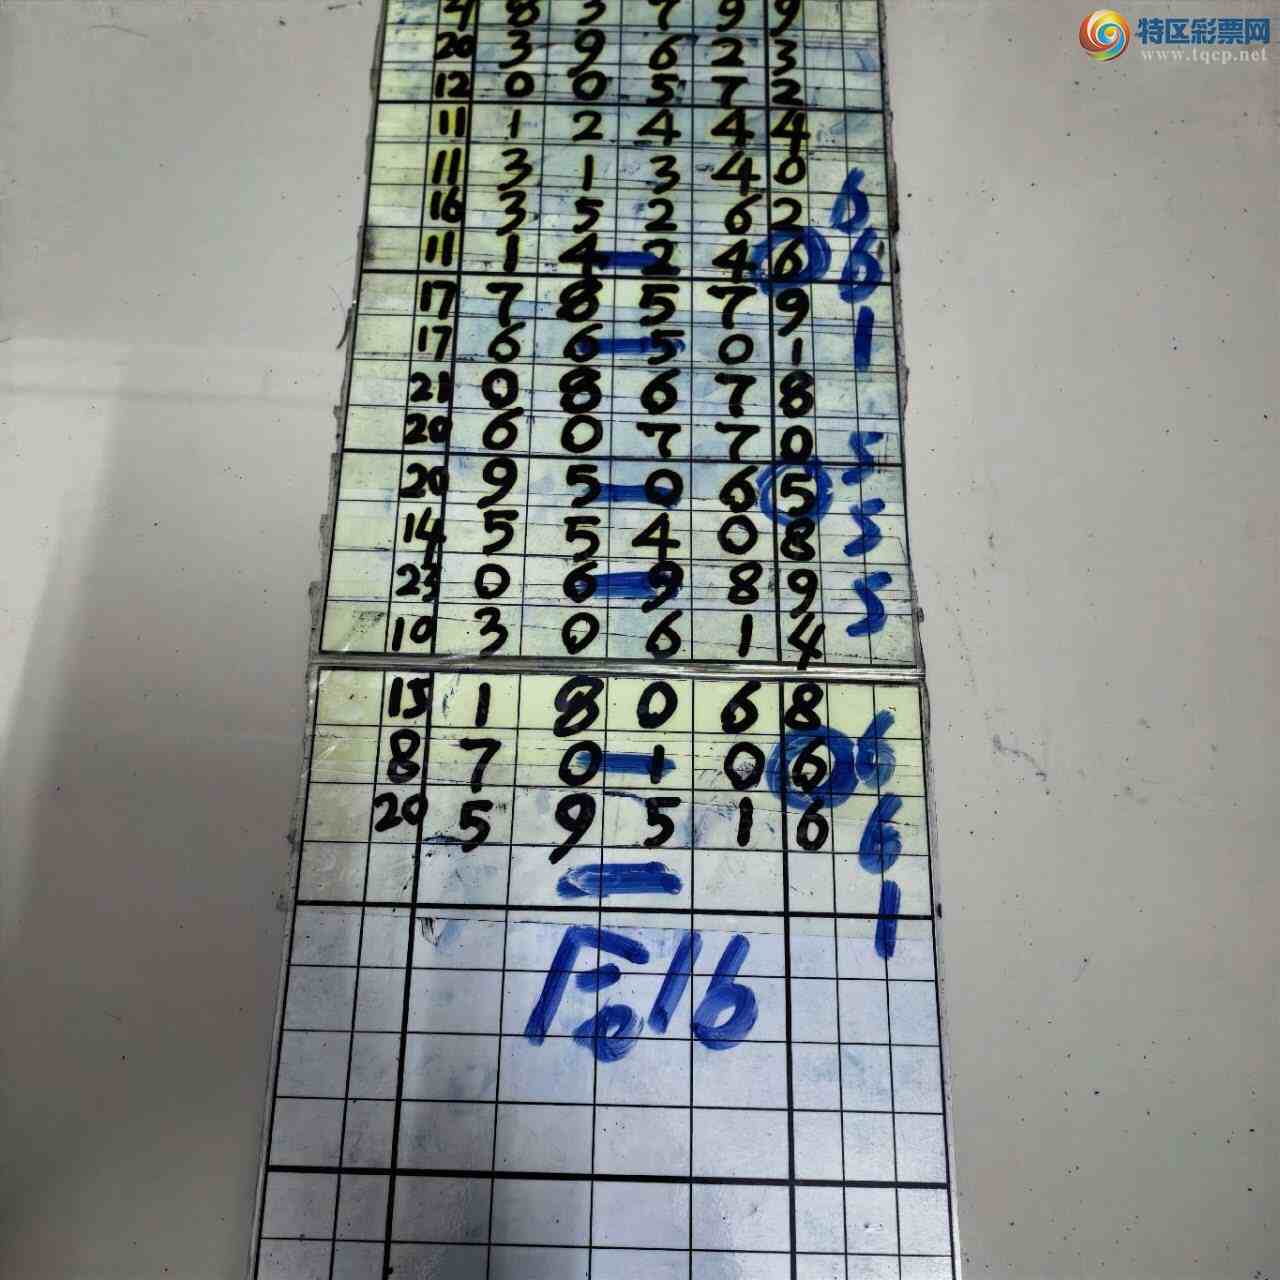 特区彩票网
www.tqcp.net
8 3 7 9 9
20 3 9 6 2 3
12 0 0 5 7 2
11 1 2 4 4 4
11 3 1 3 4 0
16 3 5 2 6 2 6
11 1 4 2 4 6 6
17 7 8 5 7 9
17 6 6 5 0 1 1
21 0 8 6 7 8
20 6 0 7 7 0 5
20 9 5 0 6 5
14 5 5 4 0 8 5
23 0 6 9 8 9 5
10 3 0 6 1 4
15 1 8 0 6 8
8 7 0 1 0 6 6
20 5 9 5 1 6 6
1
16